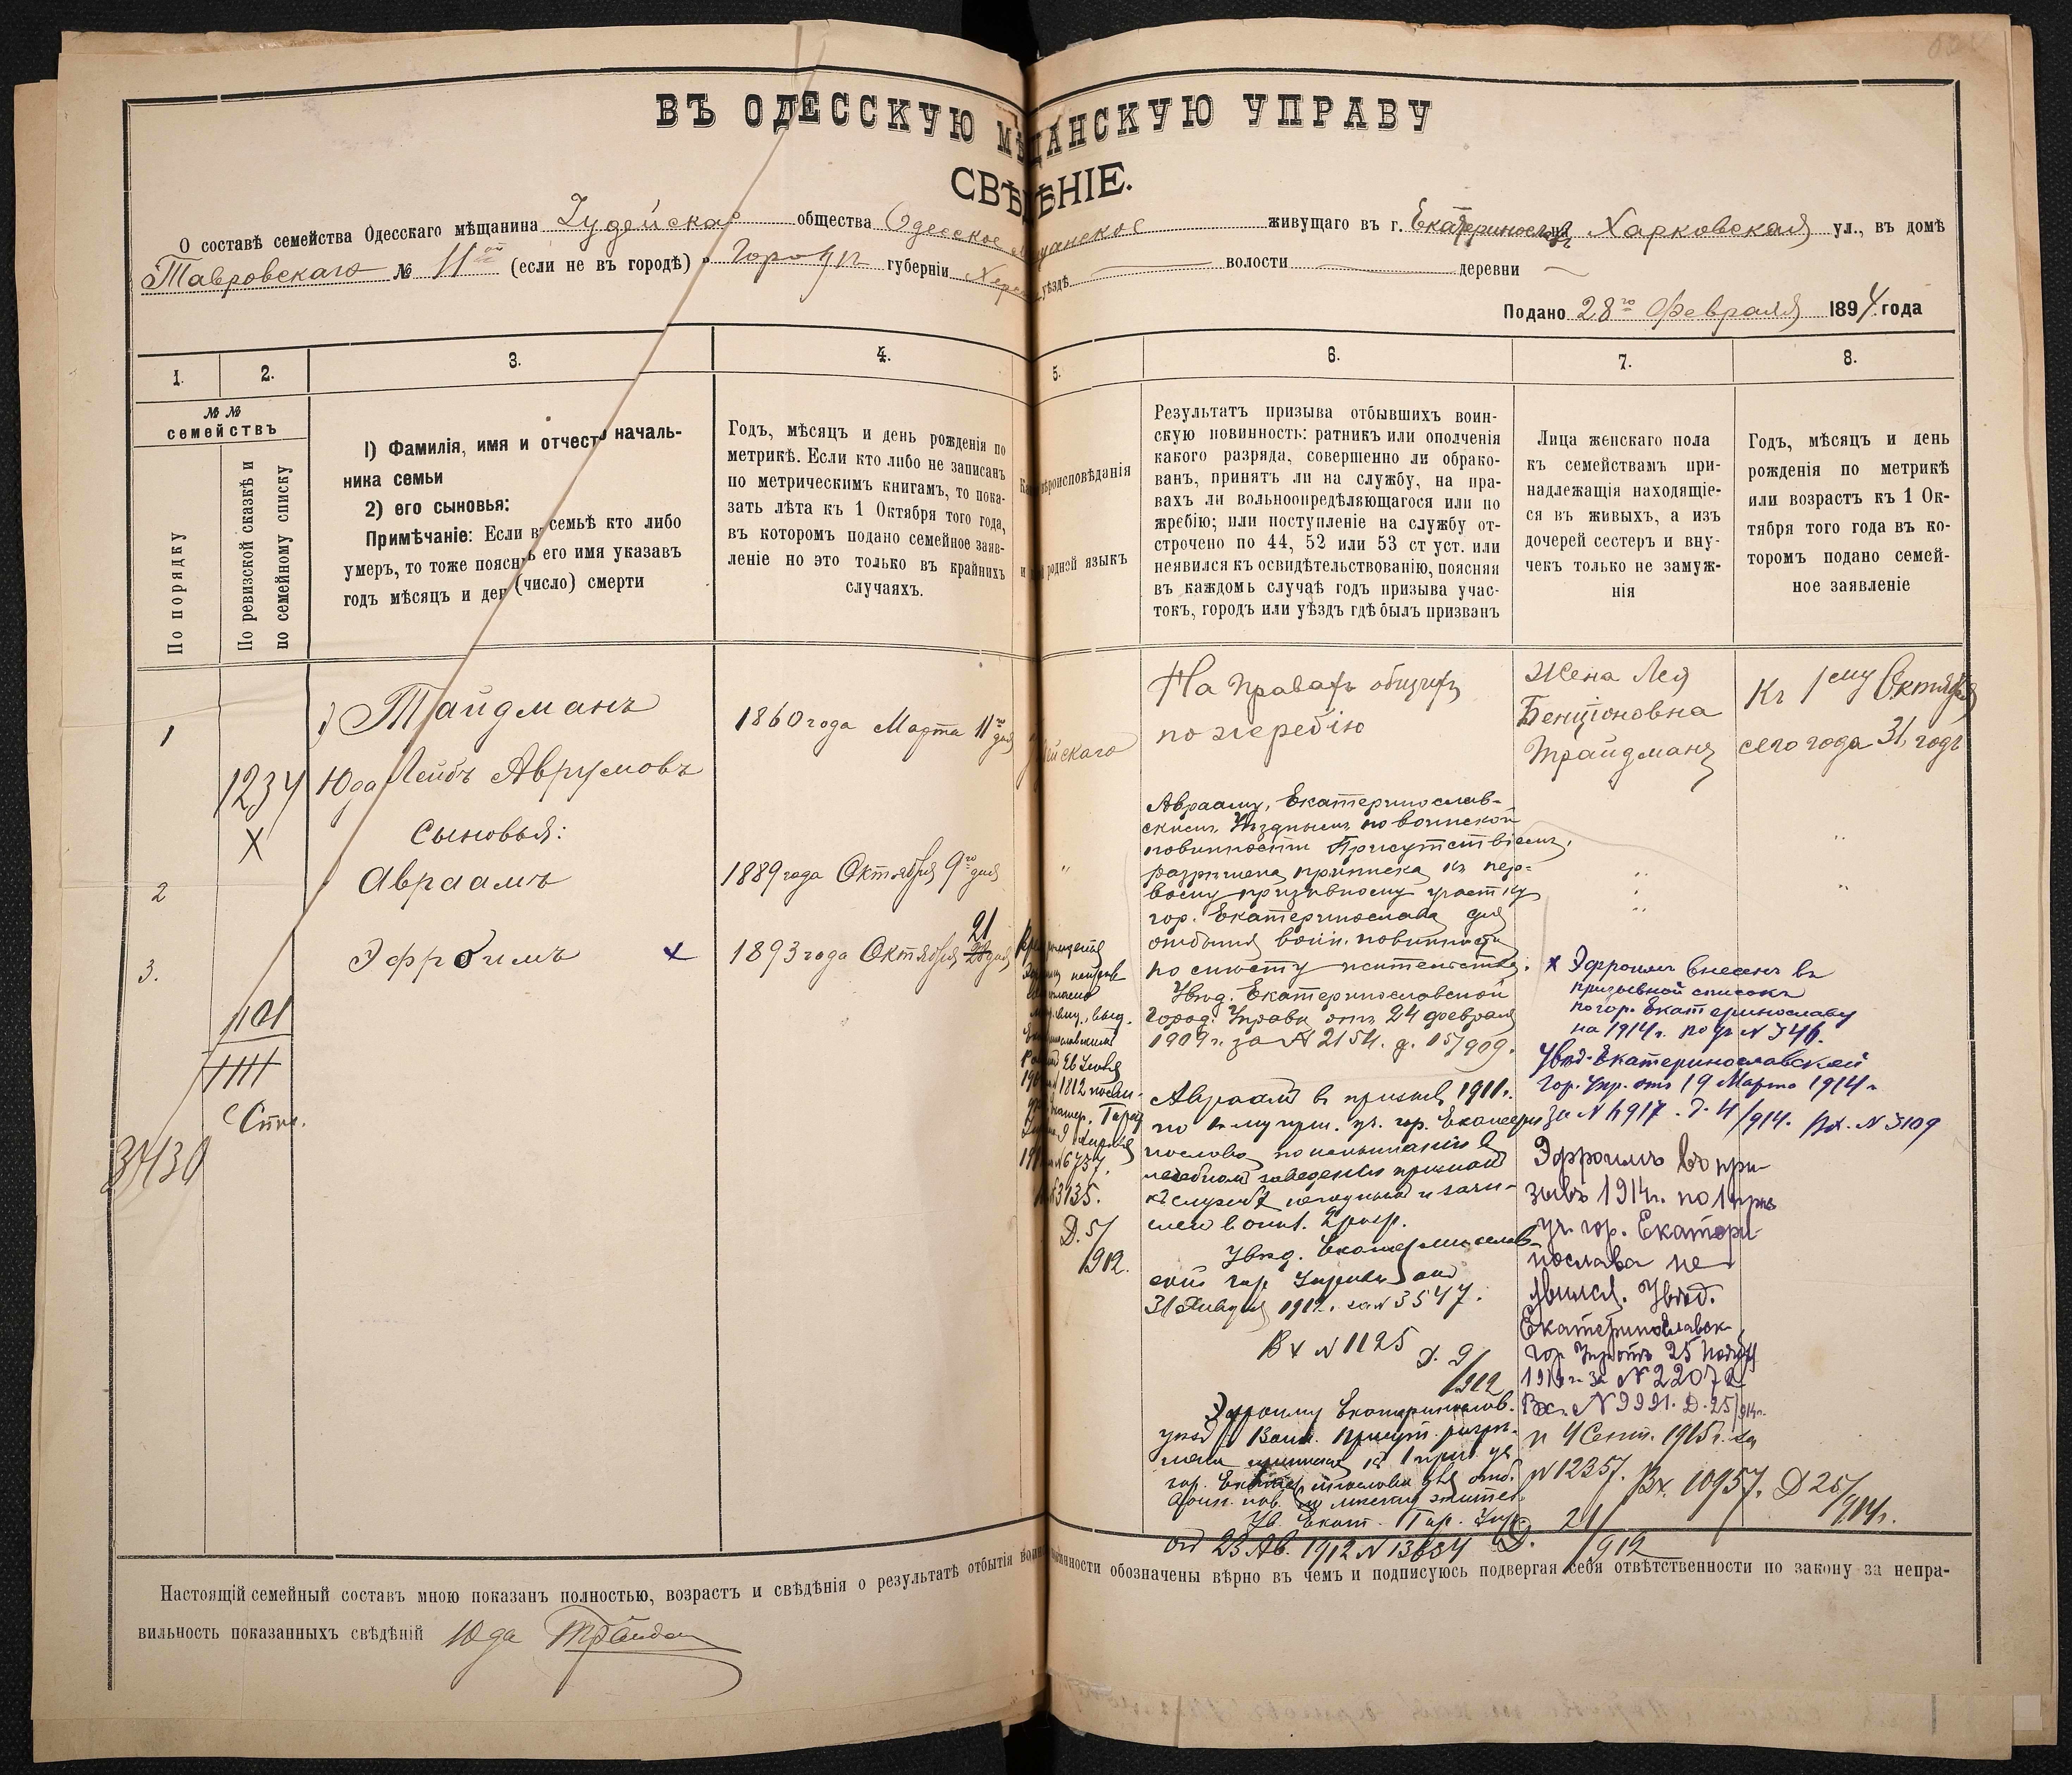 ВЪ ОДЕССКУЮ МѢЩАНСКУЮ УПРАВУ
СВѢДѢНІЕ.
О составѣ семейства Одесскаго мѣщанина Іудейска общества Одесское мѣщанское живущаго въ г. Екатеринославѣ Харковская ул., въ домѣ
Тавровскаго № 11ой (если не въ городѣ) въ Городѣ губерніи Херс уѣздѣ волости деревни
Подано 28го Февраля 1894 года
1.
2.
3.
4.
5.
6.
7.
8.
№ №
семействъ
По порядку
По ревизской сказкѣ и
по семейному списку
I) Фамилія, имя и отчест началь-
ника семьи
2) его сыновья:
Примѣчаніе: Если въ семьѣ кто либо
умеръ, то тоже поясн его имя указавъ
годъ мѣсяцъ и ден (число) смерти
Годъ, мѣсяцъ и день рожденія по
метрикѣ. Если кто либо не записанъ
по метрическимъ книгамъ, то пока-
зать лѣта къ 1 Октября того года,
въ которомъ подано семейное заяв-
леніе но это только въ крайнихъ
случаяхъ.
вѣроисповѣданія
и родной языкъ
Результатъ призыва отбывшихъ воин-
скую повинность: ратникъ или ополченія
какого разряда, совершенно ли обрако-
ванъ, принятъ ли на службу, на пра-
вахъ ли вольноопредѣляющагося или по
жребію; или поступленіе на службу от-
строчено по 44, 52 или 53 ст уст. или
неявился къ освидѣтельствованію, поясняя
въ каждомъ случаѣ годъ призыва учас-
токъ, городъ или уѣздъ гдѣ былъ призванъ
Лица женскаго пола
къ семействамъ при-
надлежащія находящіе-
ся въ живыхъ, а изъ
дочерей сестеръ и вну-
чекъ только не замуж-
нія
Годъ, мѣсяцъ и день
рожденія по метрикѣ
или возрастъ къ 1 Ок-
тября того года въ ко-
торомъ подано семей-
ное заявленіе
1
1234
X
1) Тайдманъ
Юда Лейбъ Аврумовъ
1860 года Марта 11го дня
На правахъ общихъ
по жеребію
Жена Лея
Бенціоновна
Трайдманъ
Къ 1ему Октября
сего года 31 годъ
Сыновья:
2
Авраамъ
1889 года Октября 9го дня
3.
Эфроимъ
х
1893 года Октября 21 28 дня
101
Спис.
3430
26 Іюня
1812
6757.
3135.
Д. 5/
912.
Аврааму, Екатеринослав-
скимъ Уѣзднымъ по воинской
повинности Присутствіемъ,
разрѣшена приписка къ пер-
вому призывному участку
гор. Екатеринослава для
отбытія воин. повинности
по мѣсту жительства.
Увѣд. Екатеринославской
Город. Управы отъ 24 февраля
1909 г. за № 2154. д. 15/909.
Авраамъ въ призывъ 1911 г.
по 1 му приз. уч. гор. Екатери
нослава по испытаніи въ
лечебномъ заведеніи признанъ
къ службѣ негоднымъ и зачи-
сленъ в опол. 2 разр.
Увѣд. Екатеринослав-
ской гор. Управы отъ
31 Января 1912 г. за № 3547.
Вх № 1125
Д. 9/
912
Эфроиму Екатеринослав.
уѣзд. Воин. Присут. разрѣ-
шена приписка къ 1 приз. уч.
гор. Екатеринослава для отб.
воин. пов. по мѣсту жител.
Ув. Екат. Гор. Упр.
от 23 Ав. 1912 № 13634 Д. 21/912
х Эфроимъ внесенъ въ
призывной списокъ
по гор. Екатеринославу
на 1914 г. подъ № 346.
Увѣд. Екатеринославской
Гор. Упр. отъ 19 Марта 1914 г.
за № 4917. Д. 4/914. Вх. № 3109
Эфроимъ въ при-
зывъ 1914 г. по 1 приз
уч. гор. Екатери-
нослава не
явился. Увѣд.
Екатеринославск.
гор. Упр. отъ 25 Ноября
1914 г. за № 22072
Вх. № 9991. Д. 25/914 г.
и 4 Сент. 1915 г. за
№ 12357. Вх. 10957. Д 25/914 г.
Настоящій семейный составъ мною показанъ полностью, возрастъ и свѣдѣнія о результатѣ отбытія воинской повинности обозначены вѣрно въ чемъ и подписуюсь подвергая себя отвѣтственности по закону за непра-
вильность показанныхъ свѣдѣній Юда Трайдман